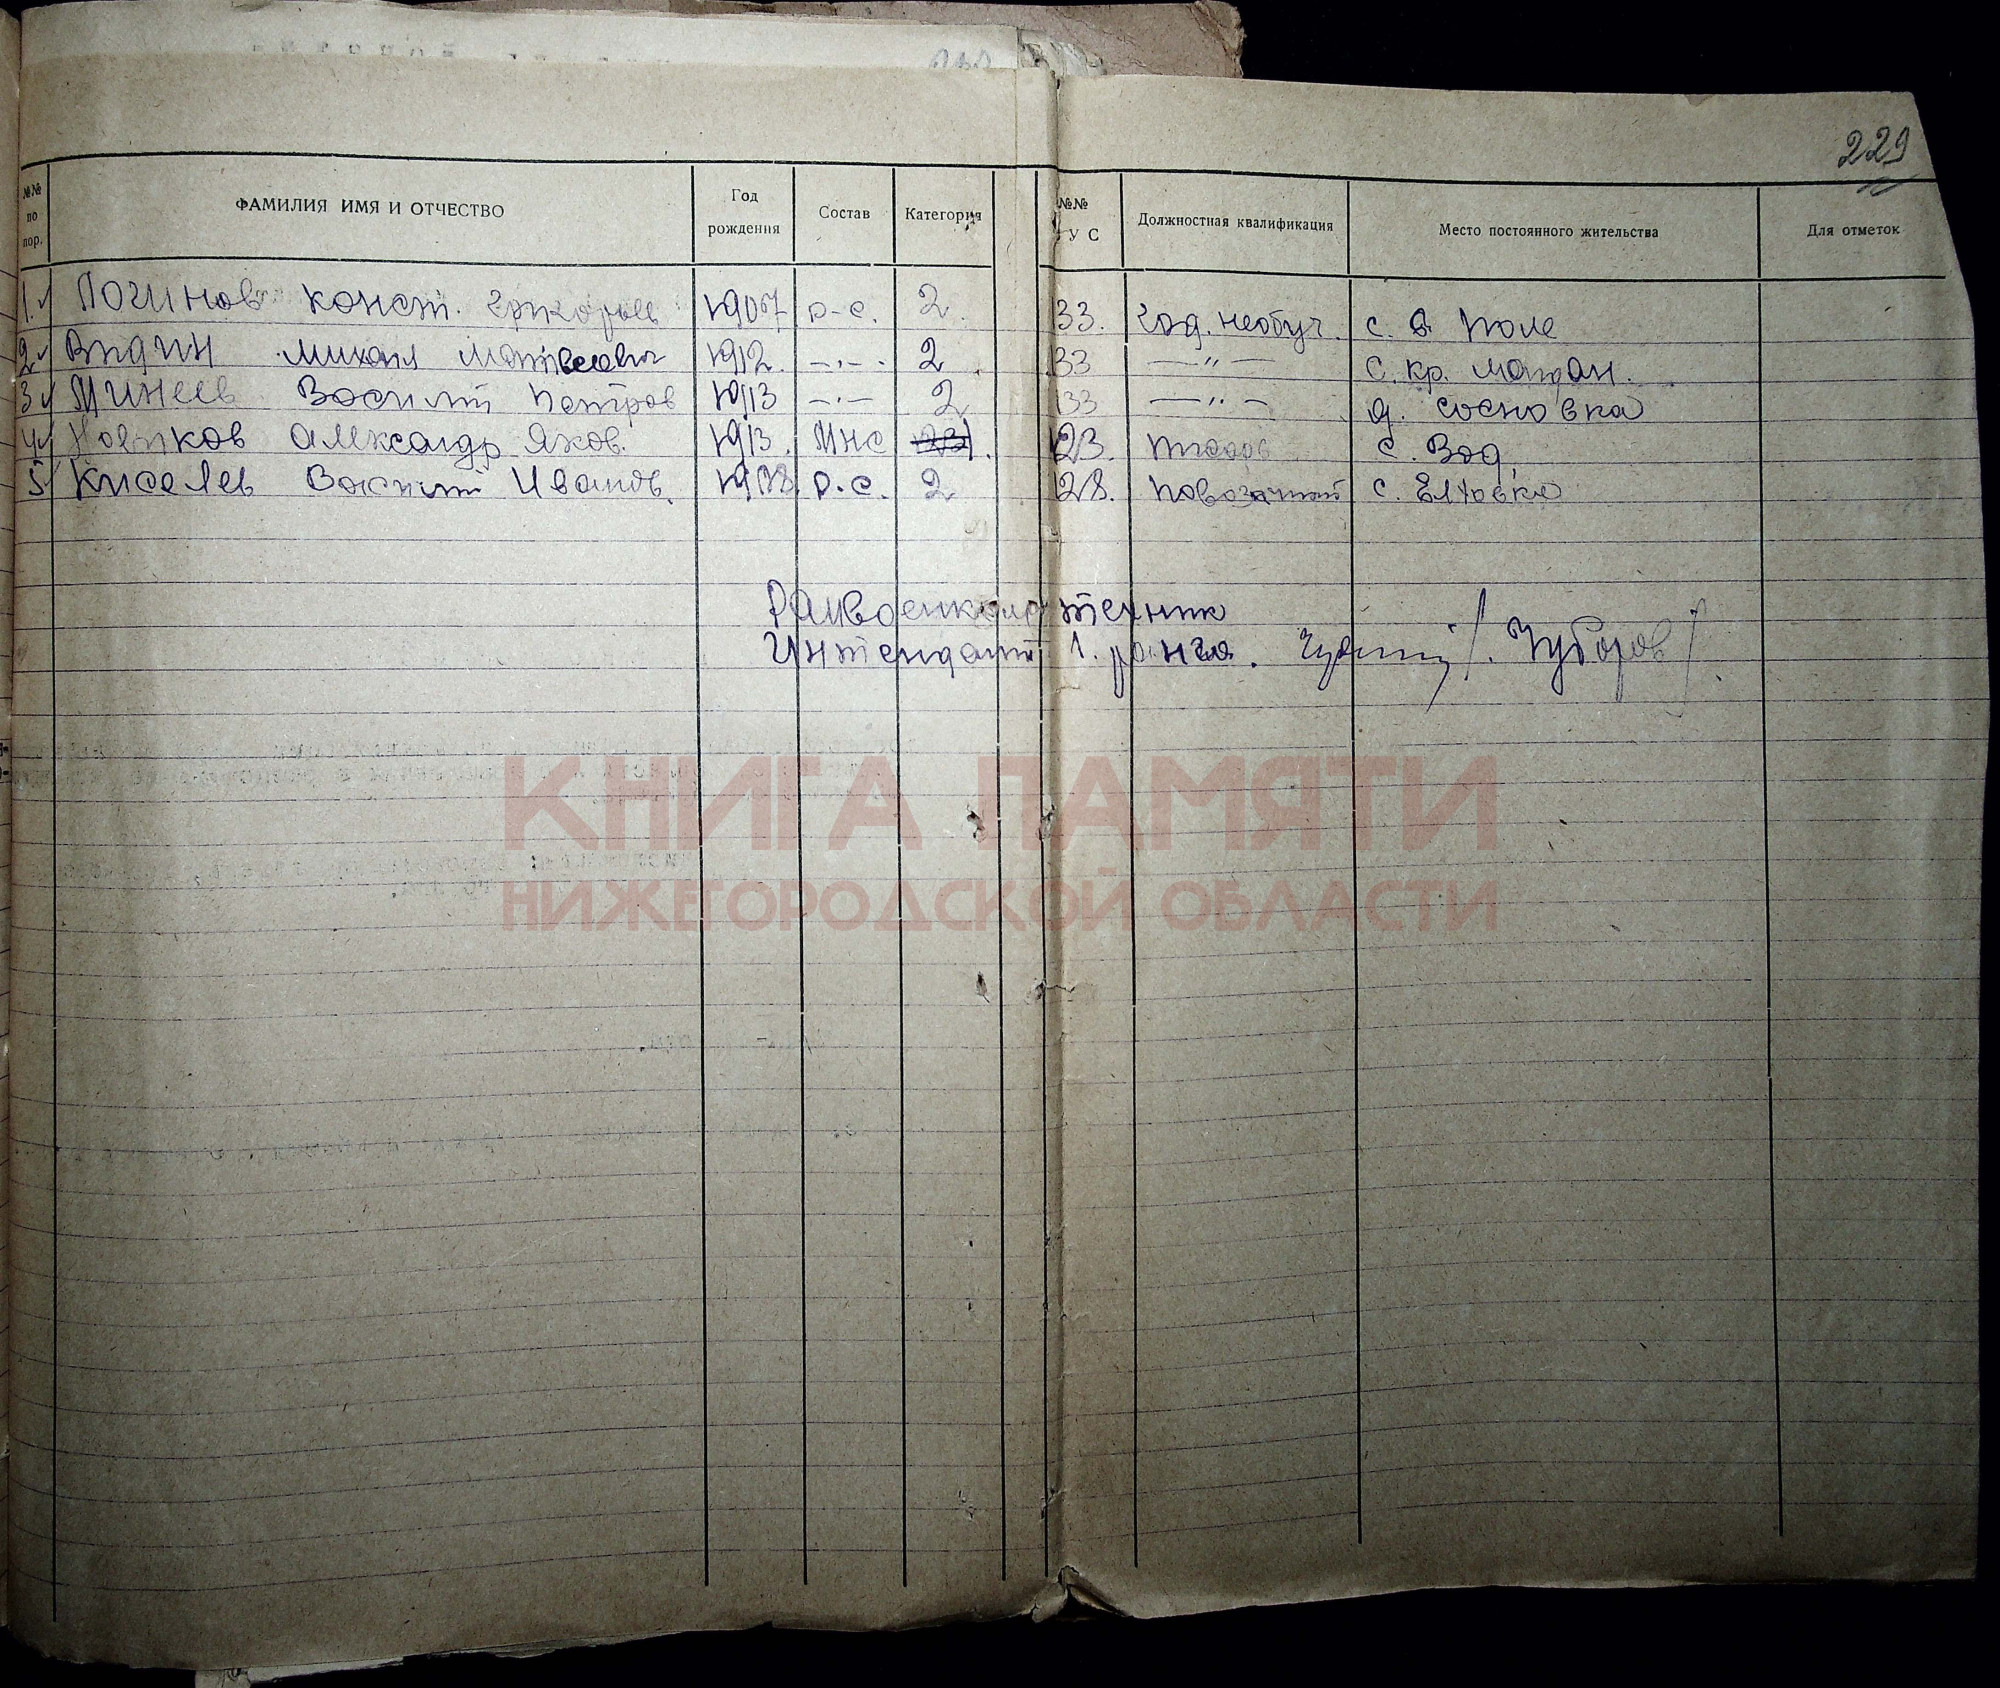 229
№№ по пор. ФАМИЛИЯ ИМЯ И ОТЧЕСТВО Год рождения Состав Категория №№ УС Должностная квалификация Место постоянного жительства Для отметок
1. Логинов Конст. 1907 р-с. 2. 133. год. необуч. с. Поле
2 Видин Михаил Матвеевич 1912. —"—. 2 133 —"— с. кр. Майдан.
3 Минеев Василий Петров 1913 —"— 2 133 —"— д. Сосновка
4 Новиков Александр Яков. 1913. МНС 123. с. Вад.
5 Киселев Василий Иванов. р.с. 2 128. повозочный с. Елховка
Райвоенком техник
Интендант 1. ранга. /. Чуборов /.
КНИГА ПАМЯТИ
НИЖЕГОРОДСКОЙ ОБЛАСТИ